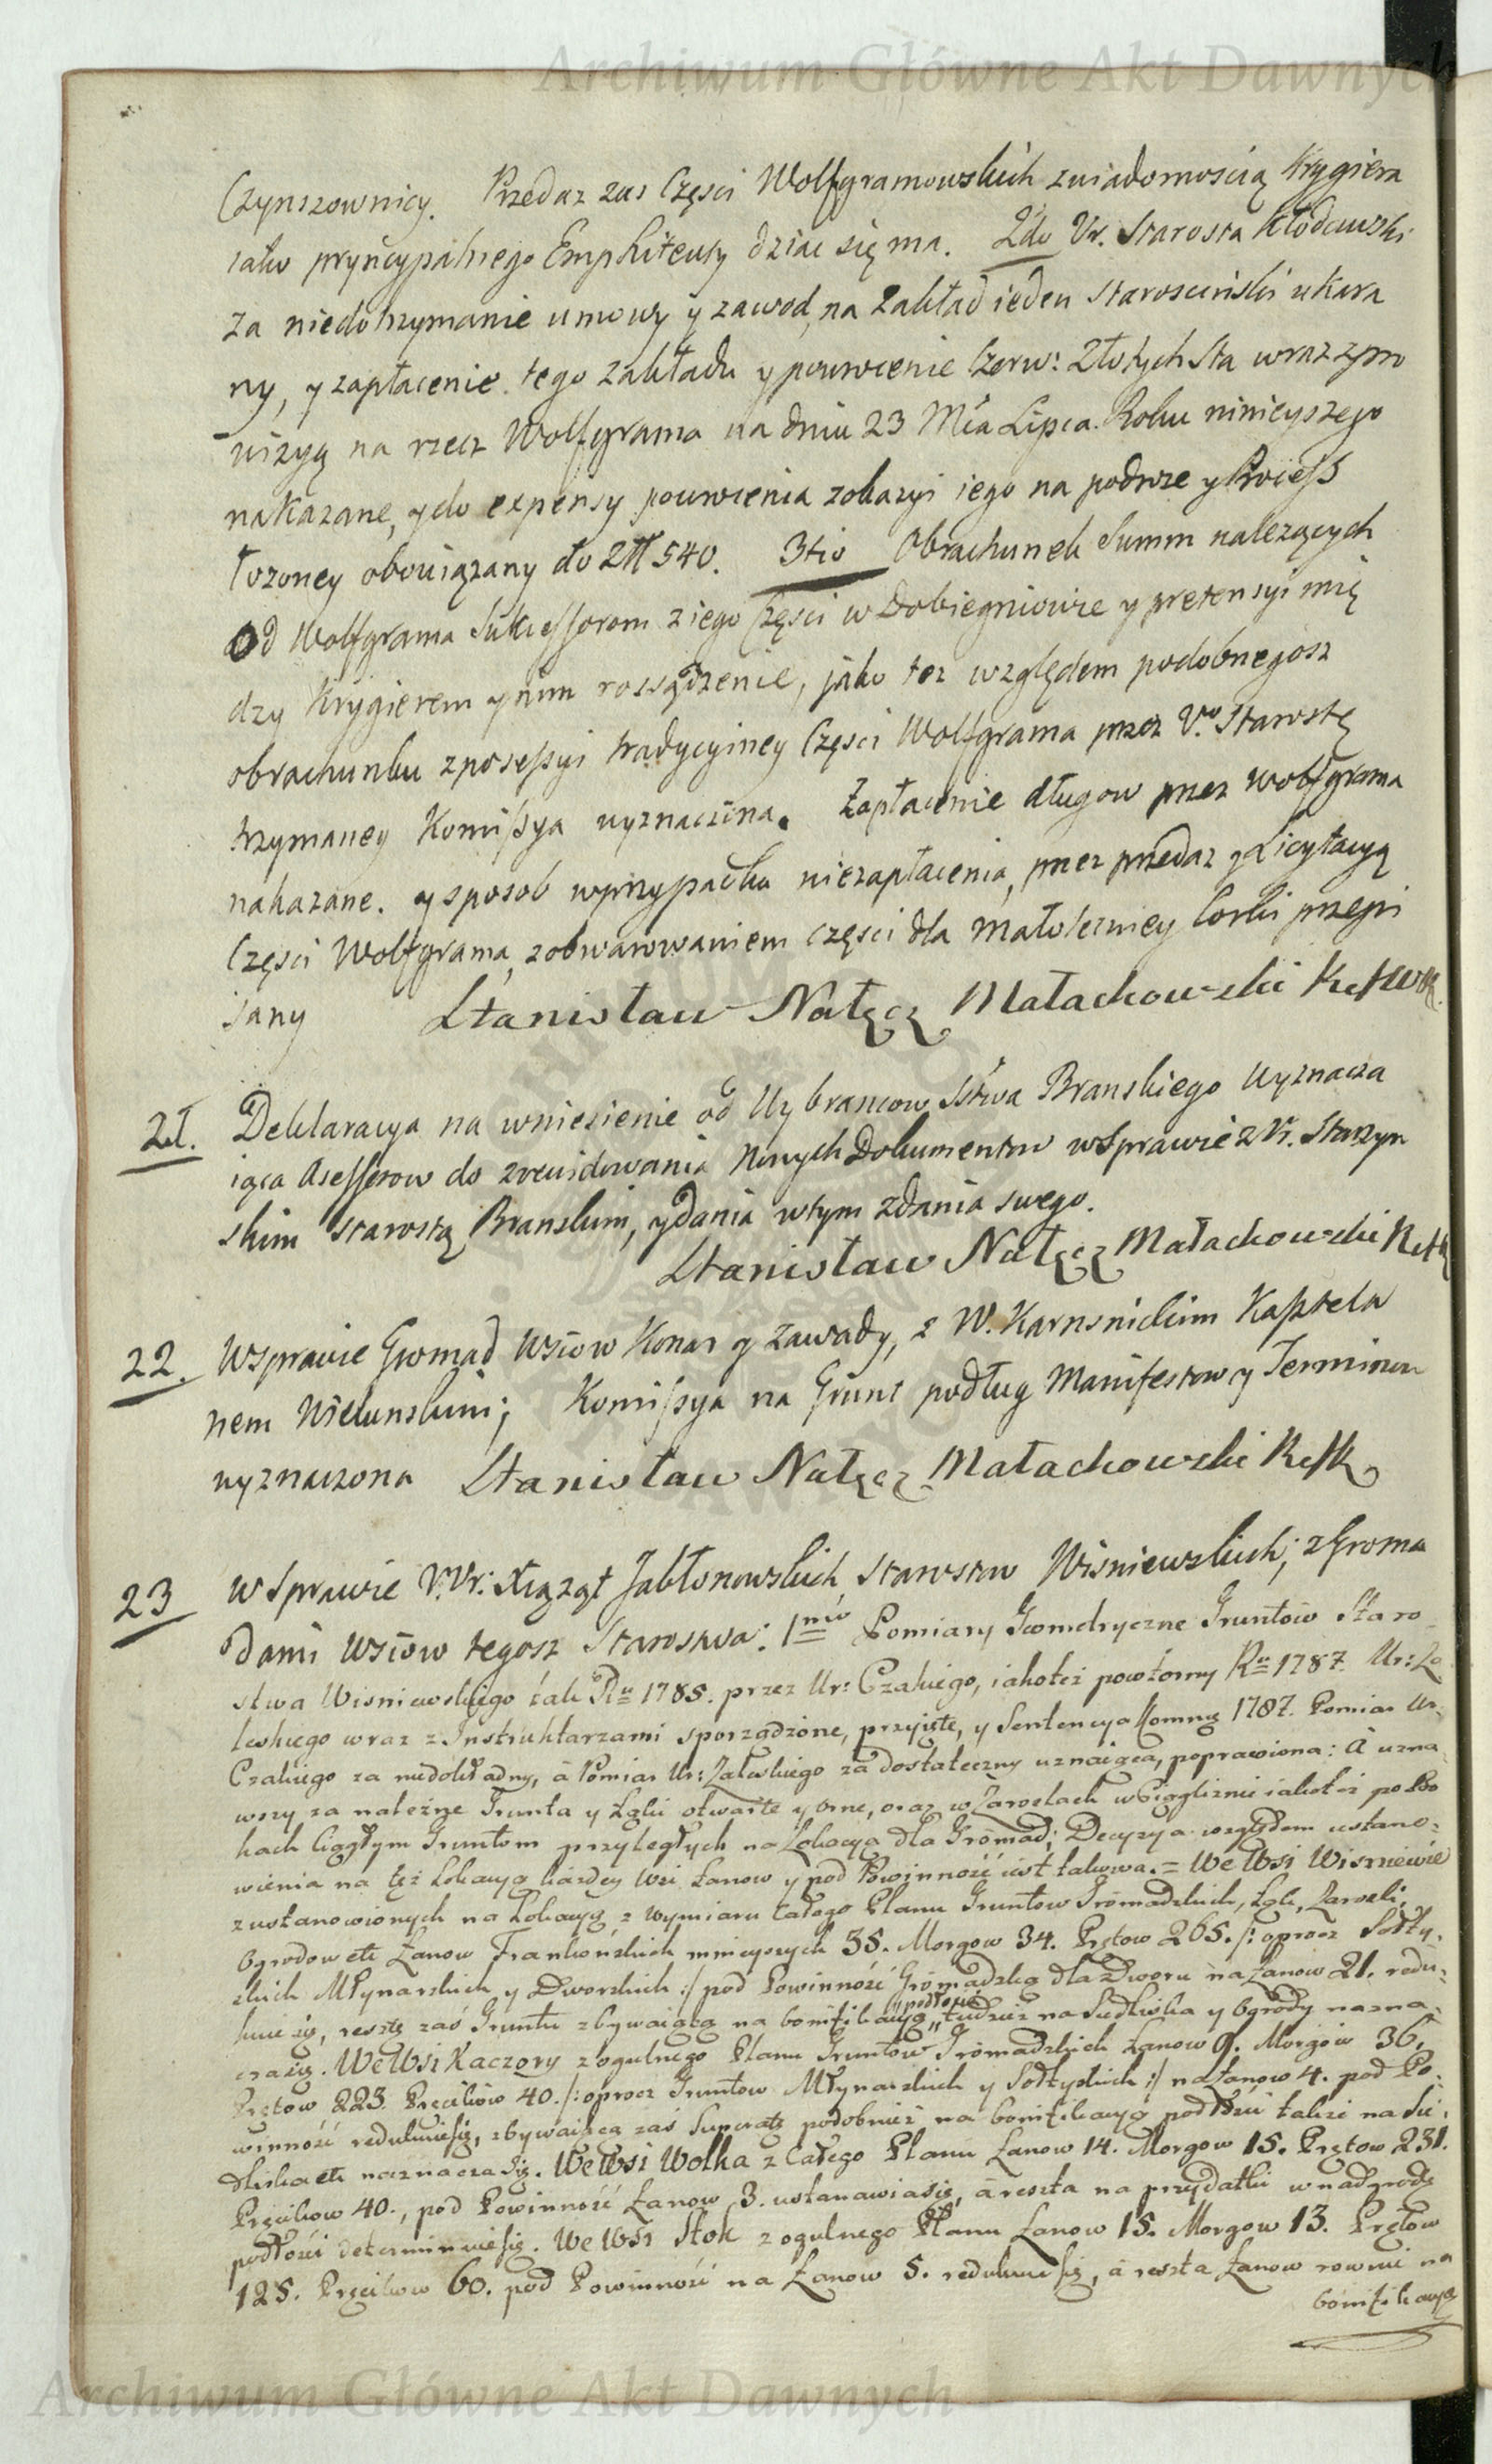 Archiwum Główne Akt Dawnych
Czynszownicy. Przedaz zas Części Wolfgramowskich zwiadomoscią Krygiera
iako pryncypalnego Emphiteuty dziac się ma. 2do Ur. Starosta Kłodawski
za niedotrzymanie umowy y zawod, na Zakład ieden Starosciński ukara
ny, y zapłacenie tego zakładu y powrocenie Czerw: Złotych Sta wraz zpro
wizyą na rzecz Wolfgrama na dniu 23 Mca Lipca Roku ninieyszego
nakazane, y do expensy powrocenia zokazyi iego na podroze y Process
łozoney obowiązany do Zł 540. 3tio Obrachunek Summ nalezących
Od Wolfgrama Sukcessorom z iego Części w Dobiegniowie y pretensyi mię
dzy Krygierem y nim rossądzenie, jako tez względem podobnegosz
obrachunku z possessyi tradycyiney Części Wolfgrama przez Uo. Starostę
trzymaney Komissya wyznaczona. Zapłacenie długow przez Wolfgrama
nakazane. y sposob wprzypadku niezapłacenia, przez przedaz y Licytacyą
Części Wolfgrama, zobwarowaniem części dla Małoletniey Corki przepi
sany Stanisław Nałęcz Małachowski
21. Deklaracya na wniesienie od Wybrancow Sstwa Branskiego wyznacza
iąca Asessorow do zrewidowania Nowych Dokumentow w Sprawie z Ur. Starzyn
skim Starostą Branskim, y dania wtym zdania swego.
Stanisław Nałęcz Małachowski
22. W Sprawie Gromad Wsiow Konar y Zawady, z W. Karnsnickim Kasztela
nem Wielunskim; Komissya na Grunt podług Manifestow y Terminow
wyznaczona Stanisław Nałęcz Małachowski
23 W Sprawie U.Ur: Xiążąt Jabłonowskich Starostow Wisniewskich; z Groma
dami Wsiow tegosz Starostwa: 1mo Pomiary Geometryczne Gruntow Staro
stwa Wisniewskiego tak Ru 1785. przez Ur: Czakiego, iakoteż powtórny Ru 1787. Ur: Za
łuskiego wraz z Instruktarzami sporządzone, przyięte, y Sentencya Kommy 1787. Pomiar Ur:
Czakiego za niedokładny, à Pomiar Ur: Załuskiego za dostateczny uznaiąca, poprawiona: A uzna
wszy za należne Grunta y Łąki otwarte y orne, oraz w Zaroslach w Ciągliznie iakoteż po Bo
kach ciągłym Gruntom przyległych na Lokacyą dla Gromad; Decyzya względem ustano-
wienia na tęż Lokacyą każdey Wsi Łanow y pod Powinność iest takowa. = We Wsi Wiszniewie
z ustanowionych na Lokacyą z Wymiaru całego Planu Gruntow Gromadzkich, Łąk, Zarosli,
Ogrodow etc Łanow Frankońskich mnieyszych 35. Morgow 34. Prętow 265. /: oprocz Sołty-
skich Młynarskich y Dworskich :/ pod Powinność Gromadzką dla Dworu na Łanow 21. redu-
kuie się, resztę zaś Gruntu zbywaiącą na bonifikacyą podłosci, tudzież na Siedliska y Ogrody nazna-
czaiąc. We Wsi Kaczory z ogulnego Planu Gruntow Gromadzkich Łanow 9. Morgow 36.
Prętow 223. Pręcikow 40. /: oprocz Gruntow Młynarskich y Sołtyskich :/ na Łanow 4. pod Po-
winność redukuie się, zbywaiąca zaś Superata podobnież na bonifikacyą podłości także na Sie-
dliska etc naznacza się. We Wsi Wolka z całego Planu Łanow 14. Morgow 15. Prętow 231.
Pręcikow 40., pod Powinność Łanow 3. ustanawia się, à reszta na przydatki w nadgrodę
podłości determinuie się. We Wsi Stok z ogulnego Planu Łanow 15. Morgow 13. Prętow
125. Pręcikow 60. pod Powinność na Łanow 5. redukuie się, à reszta Łanow rownie na
bonifikacyą
Archiwum Główne Akt Dawnych